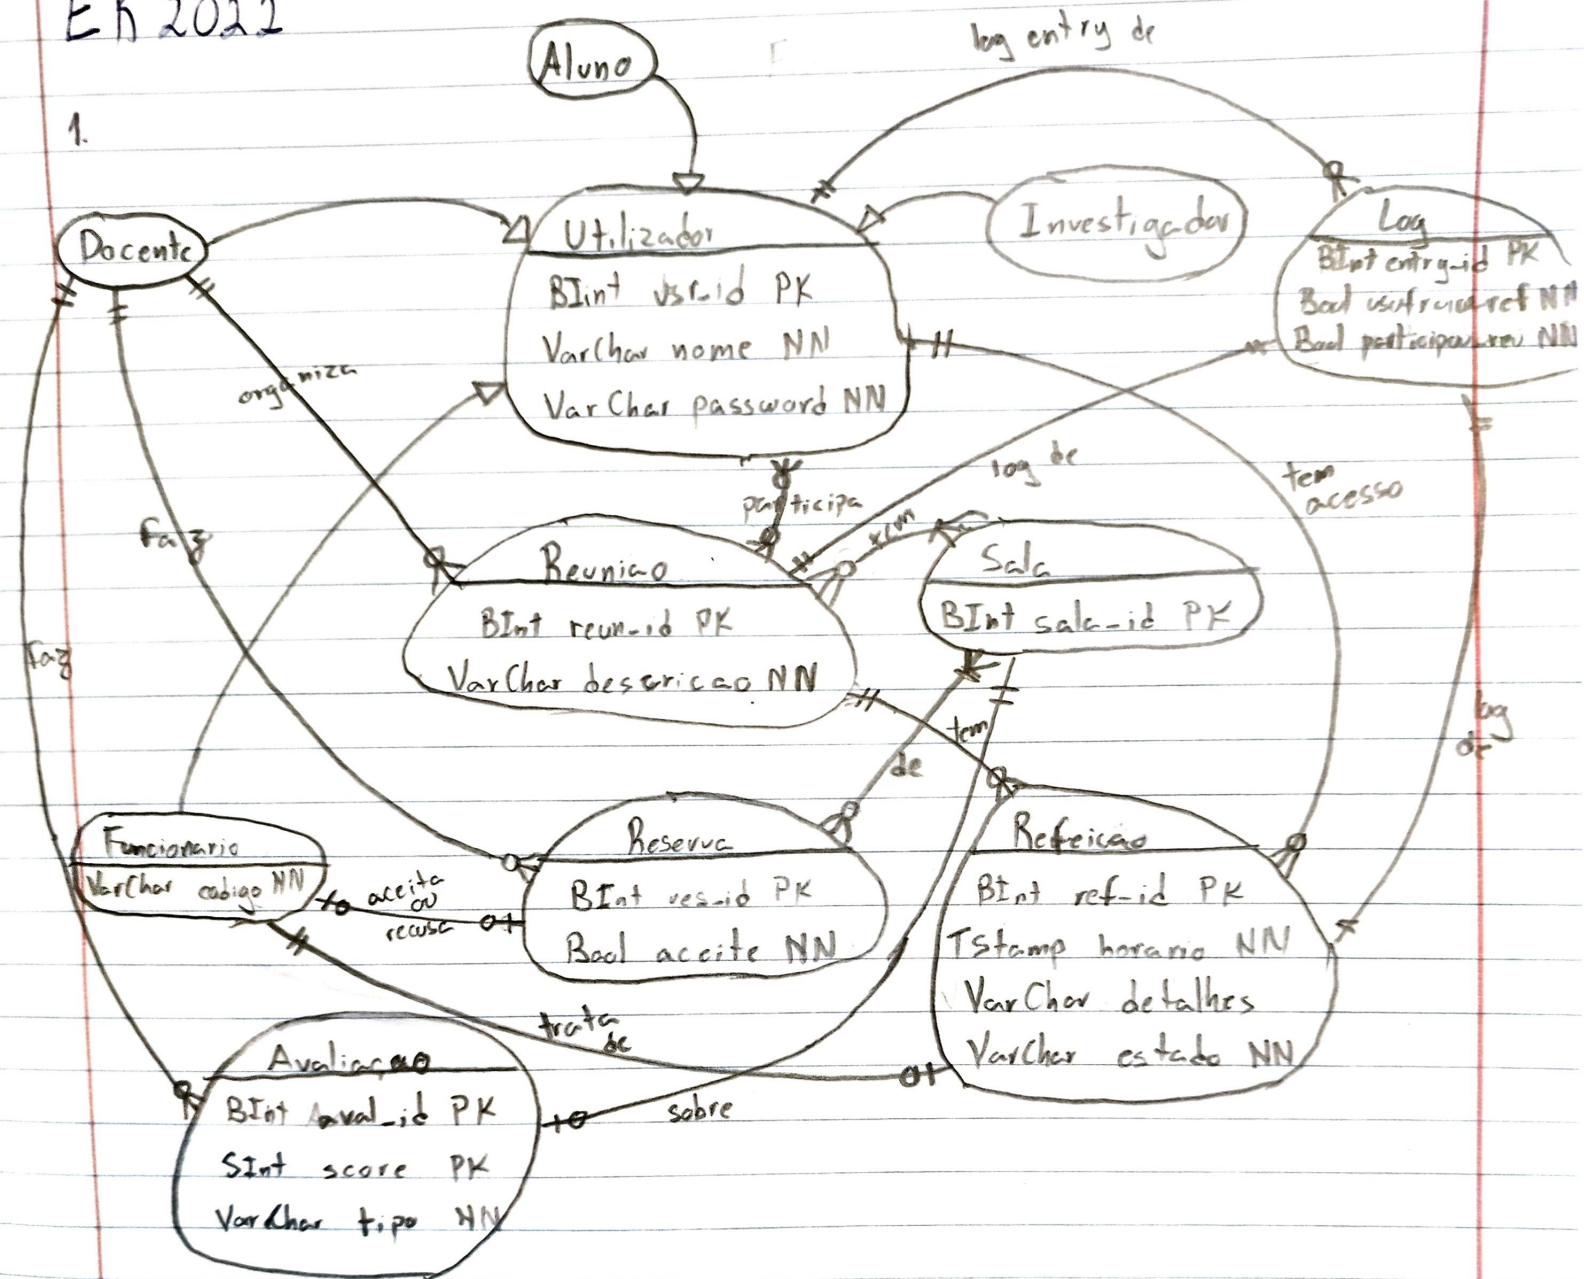 ER 2022
1.
Aluno
log entry de
Docente
Utilizador
BIint usr_id PK
VarChar nome NN
VarChar password NN
Investigador
Log
BInt entry_id PK
Bool NN
Bool NN
organiza
faz
participa
log de
tem
acesso
Reuniao
BInt reun_id PK
VarChar descricao NN
Sala
BInt sala_id PK
faz
tem
de
log
de
Funcionario
VarChar codigo NN
aceita
ou
recusa
Reserva
BInt res_id PK
Bool aceite NN
Refeicao
BInt ref_id PK
TStamp horario NN
VarChar detalhes
VarChar estado NN
trata
de
sobre
Avaliaçao
BInt aval_id PK
SInt score PK
VarChar tipo NN